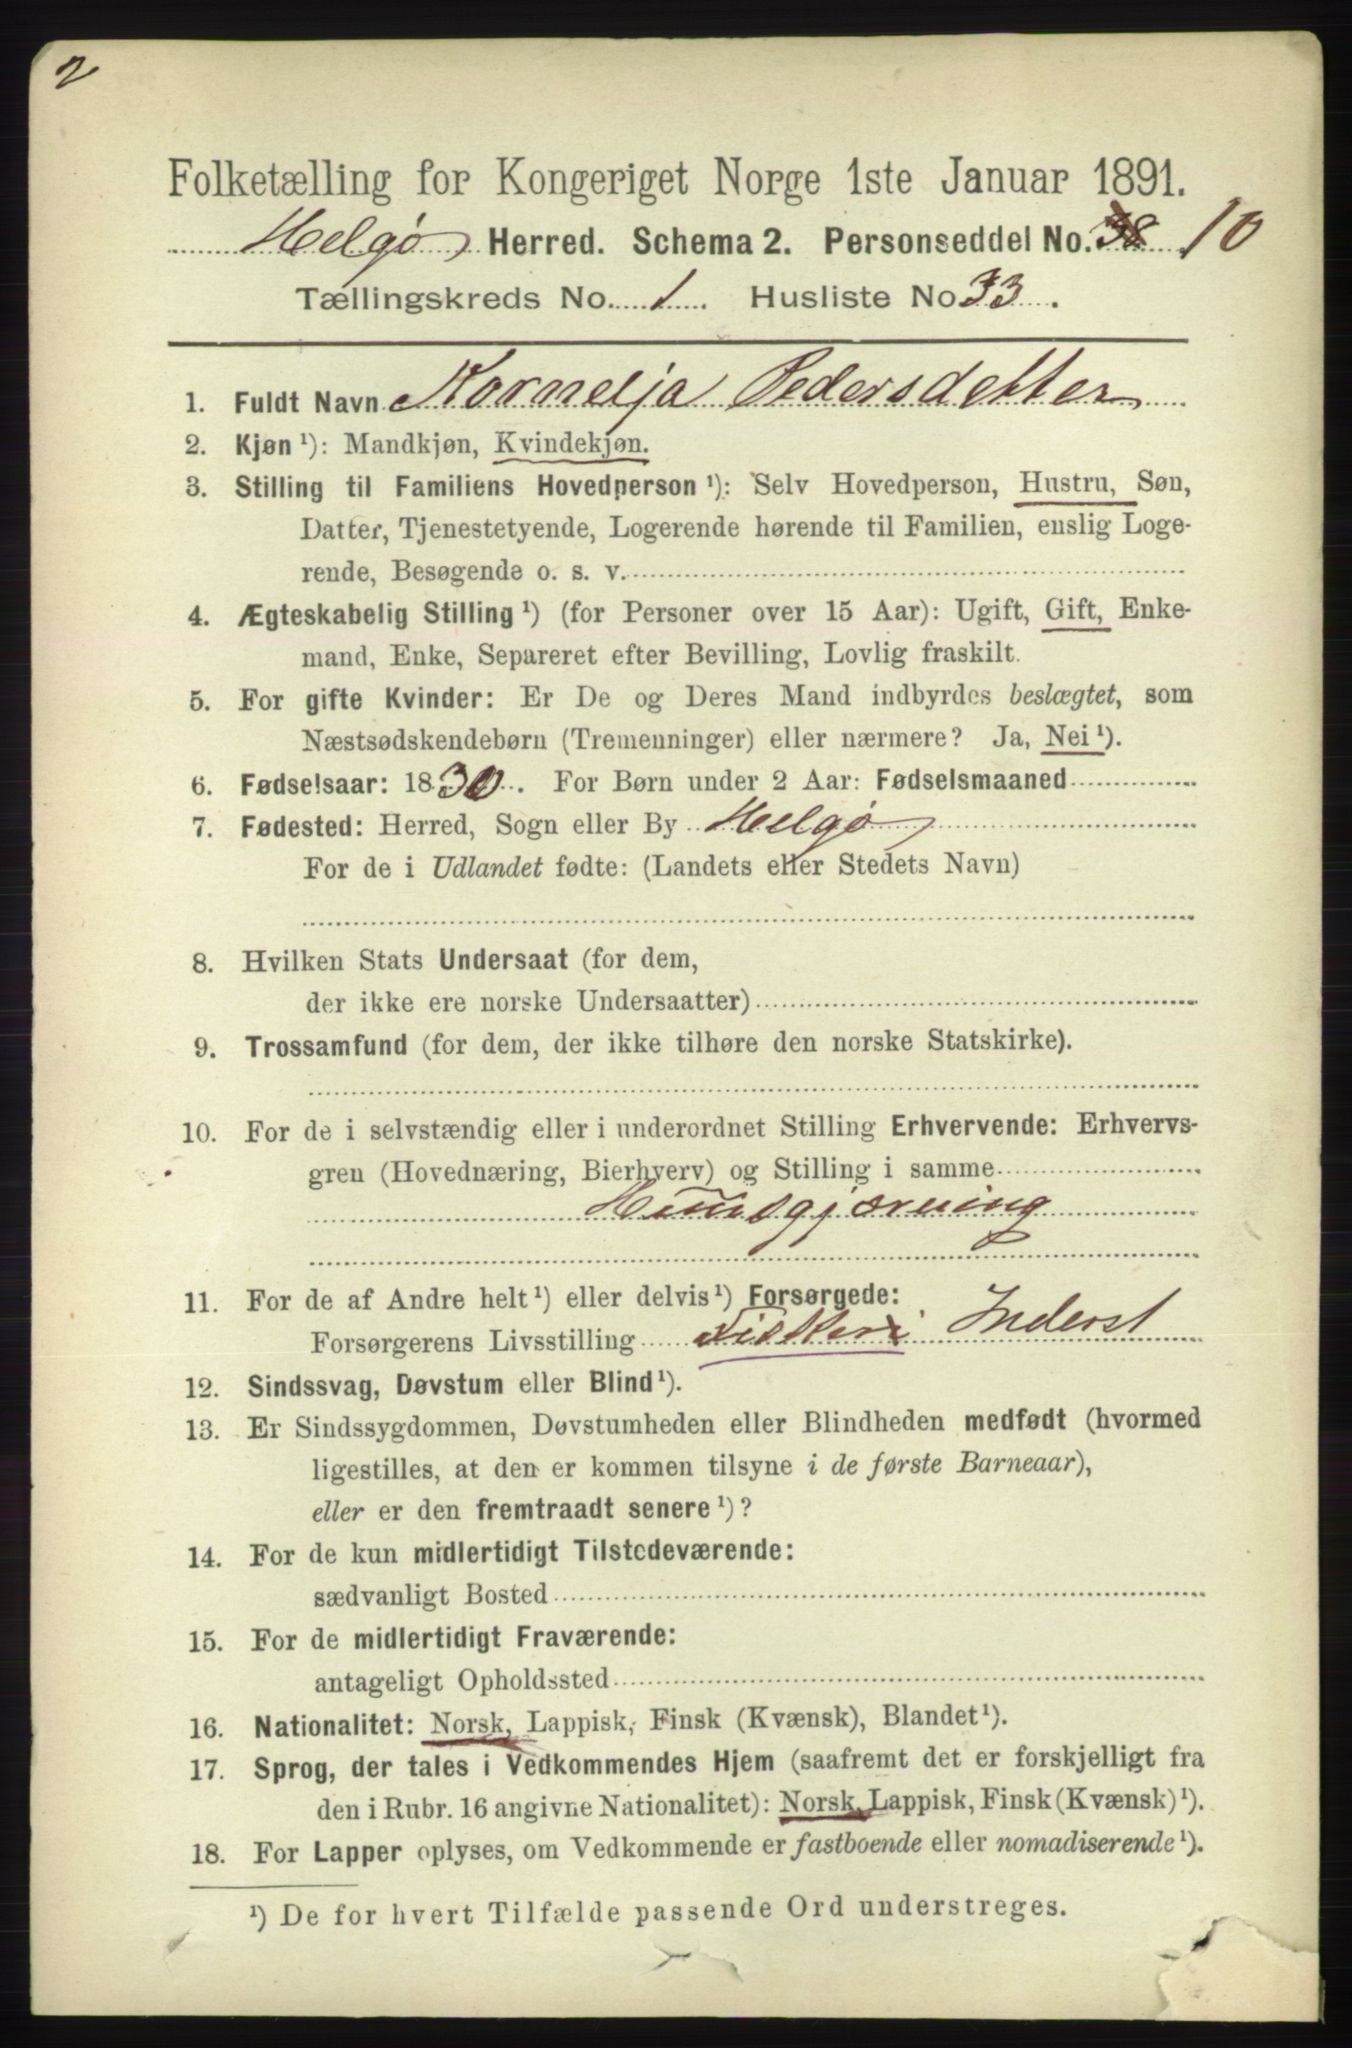 2
Folketælling for Kongeriget Norge 1ste Januar 1891.
Helgø Herred. Schema 2. Personseddel No. 38 10
Tællingskreds No. 1. Husliste No 33.
1. Fuldt Navn Kornelja Pedersdetter
2. Kjøn ¹): Mandkjøn, Kvindekjøn.
3. Stilling til Familiens Hovedperson ¹): Selv Hovedperson, Hustru, Søn,
Datter, Tjenestetyende, Logerende hørende til Familien, enslig Loge-
rende, Besøgende o. s. v.
4. Ægteskabelig Stilling ¹) (for Personer over 15 Aar): Ugift, Gift, Enke-
mand, Enke, Separeret efter Bevilling, Lovlig fraskilt.
5. For gifte Kvinder: Er De og Deres Mand indbyrdes beslægtet, som
Næstsødskendebørn (Tremenninger) eller nærmere? Ja, Nei ¹).
6. Fødselsaar: 1830. For Børn under 2 Aar: Fødselsmaaned
7. Fødested: Herred, Sogn eller By Helgø
For de i Udlandet fødte: (Landets eller Stedets Navn)
8. Hvilken Stats Undersaat (for dem,
der ikke ere norske Undersaatter)
9. Trossamfund (for dem, der ikke tilhøre den norske Statskirke).
10. For de i selvstændig eller i underordnet Stilling Erhvervende: Erhvervs-
gren (Hovednæring, Bierhverv) og Stilling i samme
Huusgjærning
11. For de af Andre helt ¹) eller delvis ¹) Forsørgede:
Forsørgerens Livsstilling Fiskeri Inderst
12. Sindssvag, Døvstum eller Blind ¹).
13. Er Sindssygdommen, Døvstumheden eller Blindheden medfødt (hvormed
ligestilles, at den er kommen tilsyne i de første Barneaar),
eller er den fremtraadt senere ¹)?
14. For de kun midlertidigt Tilstedeværende:
sædvanligt Bosted
15. For de midlertidigt Fraværende:
antageligt Opholdssted
16. Nationalitet: Norsk, Lappisk, Finsk (Kvænsk), Blandet ¹).
17. Sprog, der tales i Vedkommendes Hjem (saafremt det er forskjelligt fra
den i Rubr. 16 angivne Nationalitet): Norsk, Lappisk, Finsk (Kvænsk) ¹).
18. For Lapper oplyses, om Vedkommende er fastboende eller nomadiserende ¹).
¹) De for hvert Tilfælde passende Ord understreges.